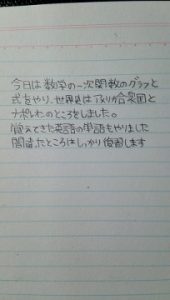 今日は数学の一次関数のグラフと
式をやり、世界史はアメリカ合衆国と
ナポレオンのところをしました。
覚えてきた英語の単語もやりました
間違ったところはしっかり復習します